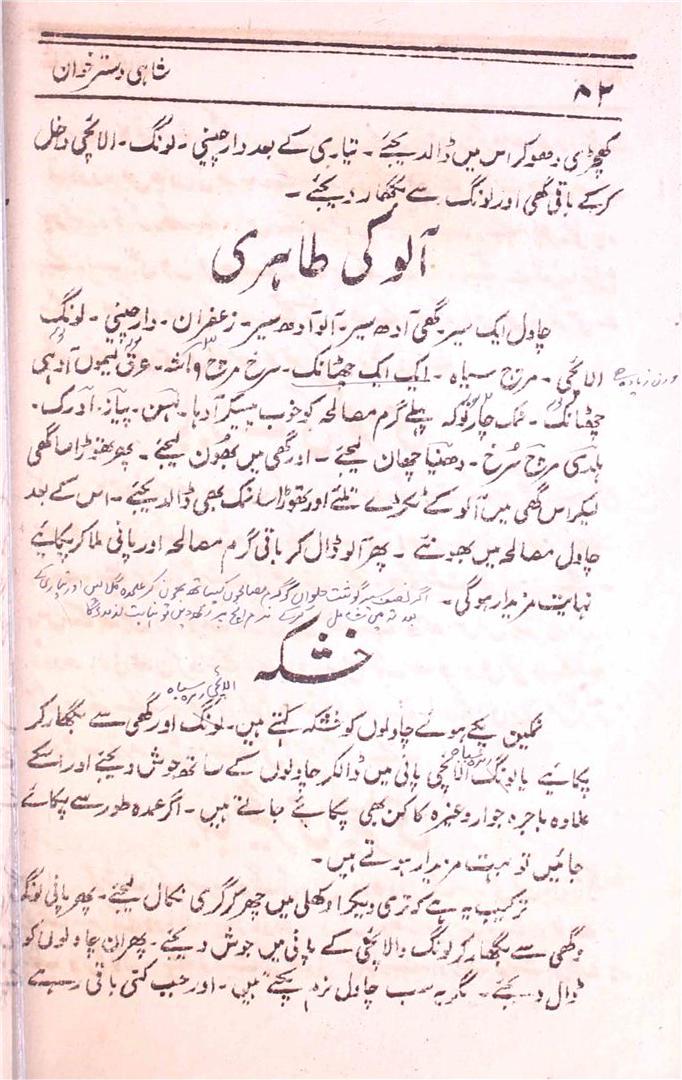 شاہی دسترخوان
۸۲
کھچڑی دھوکر اس میں ڈالدیجئے۔ تیاری کے بعد دارچینی۔ لونگ۔ الائچی داخل
کرکے باقی گھی اور لونگ سے بگھار دیجئے۔
آلو کی طاہری
چاول ایک سیر۔ گھی آدھ سیر۔ آلو آدھ سیر۔ زعفران۔ دارچینی۔ لونگ
الائچی۔ مرچ سیاہ۔ ایک ایک چھٹانک۔ سرخ مرچ ماشہ۔ عرق لیموں آدھی
چھٹانک۔ نمک چار تولہ پہلے گرم مصالحہ کو خوب پیسکر آدہا۔ لہسن۔ پیاز۔ ادرک۔
ہلدی مرچ سُرخ۔ دھنیا چھان لیجئے۔ اور گھی میں بھُون لیجئے۔ پھر تھوڑا سا گھی
لیکر اس گھی میں آلو کے ٹکڑے تلئے اور تھوڑا سا نمک بھی ڈالدیجئے۔ اس کے بعد
چاول مصالحہ میں بھونئے۔ پھر آلو ڈال کر باقی گرم مصالحہ اور پانی ملا کر پکائیے
نہایت مزیدار ہوگی۔
اگر نصف سیر گوشت حلوان کو گرم مصالحوں کیساتھ بھون کر علحدہ گلالیں اور تیاری کے
بعد تہ میں شامل کرکے دم
خشکہ
الائچی زیرہ سیاہ
نمکین پکے ہوئے چاولوں کو خشکہ کہتے ہیں۔ لونگ اور گھی سے بگھار کر
پکائیے یا لونگ الائچی پانی میں ڈالکر چاولوں کے ساتھ جوش دیجئے اور اسکے
علاوہ باجرہ جوار وغیرہ کا کن بھی پکائے جاتے ہیں۔ اگر عمدہ طور سے پکائے
جائیں تو بہت مزیدار ہوتے ہیں۔
ترکیب یہ ہے کو تری دیکر اوکھلی میں چھر کر گری نکال لیجئے۔ پھر پانی لونگ
و گھی سے بگھار کر لونگ والائچی کے پانی میں جوش دیجئے۔ پھر ان چاولوں کو
ڈال دیجئے۔ مگر یہ سب چاول نرم پکتے ہیں۔ اور جب کنی باقی رہے